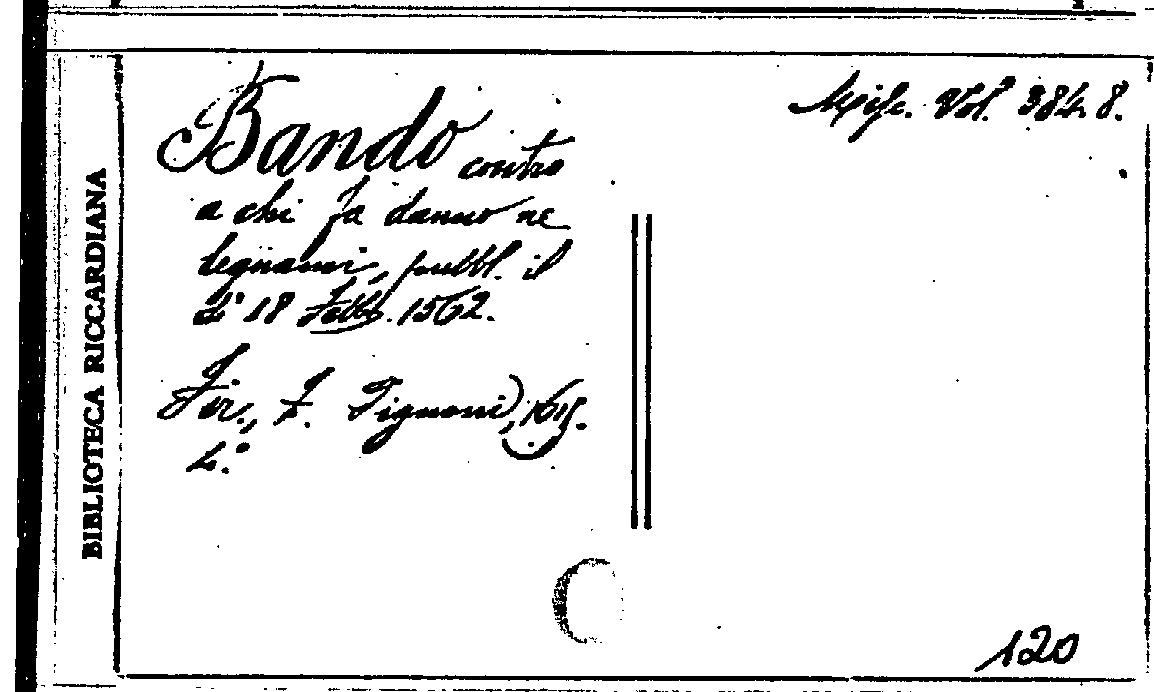 BIBLIOTECA RICCARDIANA
Misc. Vol. 384. 8.
Bando contro
a chi fa danno ne
legnami, pubbl. il
dì 18 Febb. 1562.
Fir., Z. Pignoni, 1615.
4.°
120